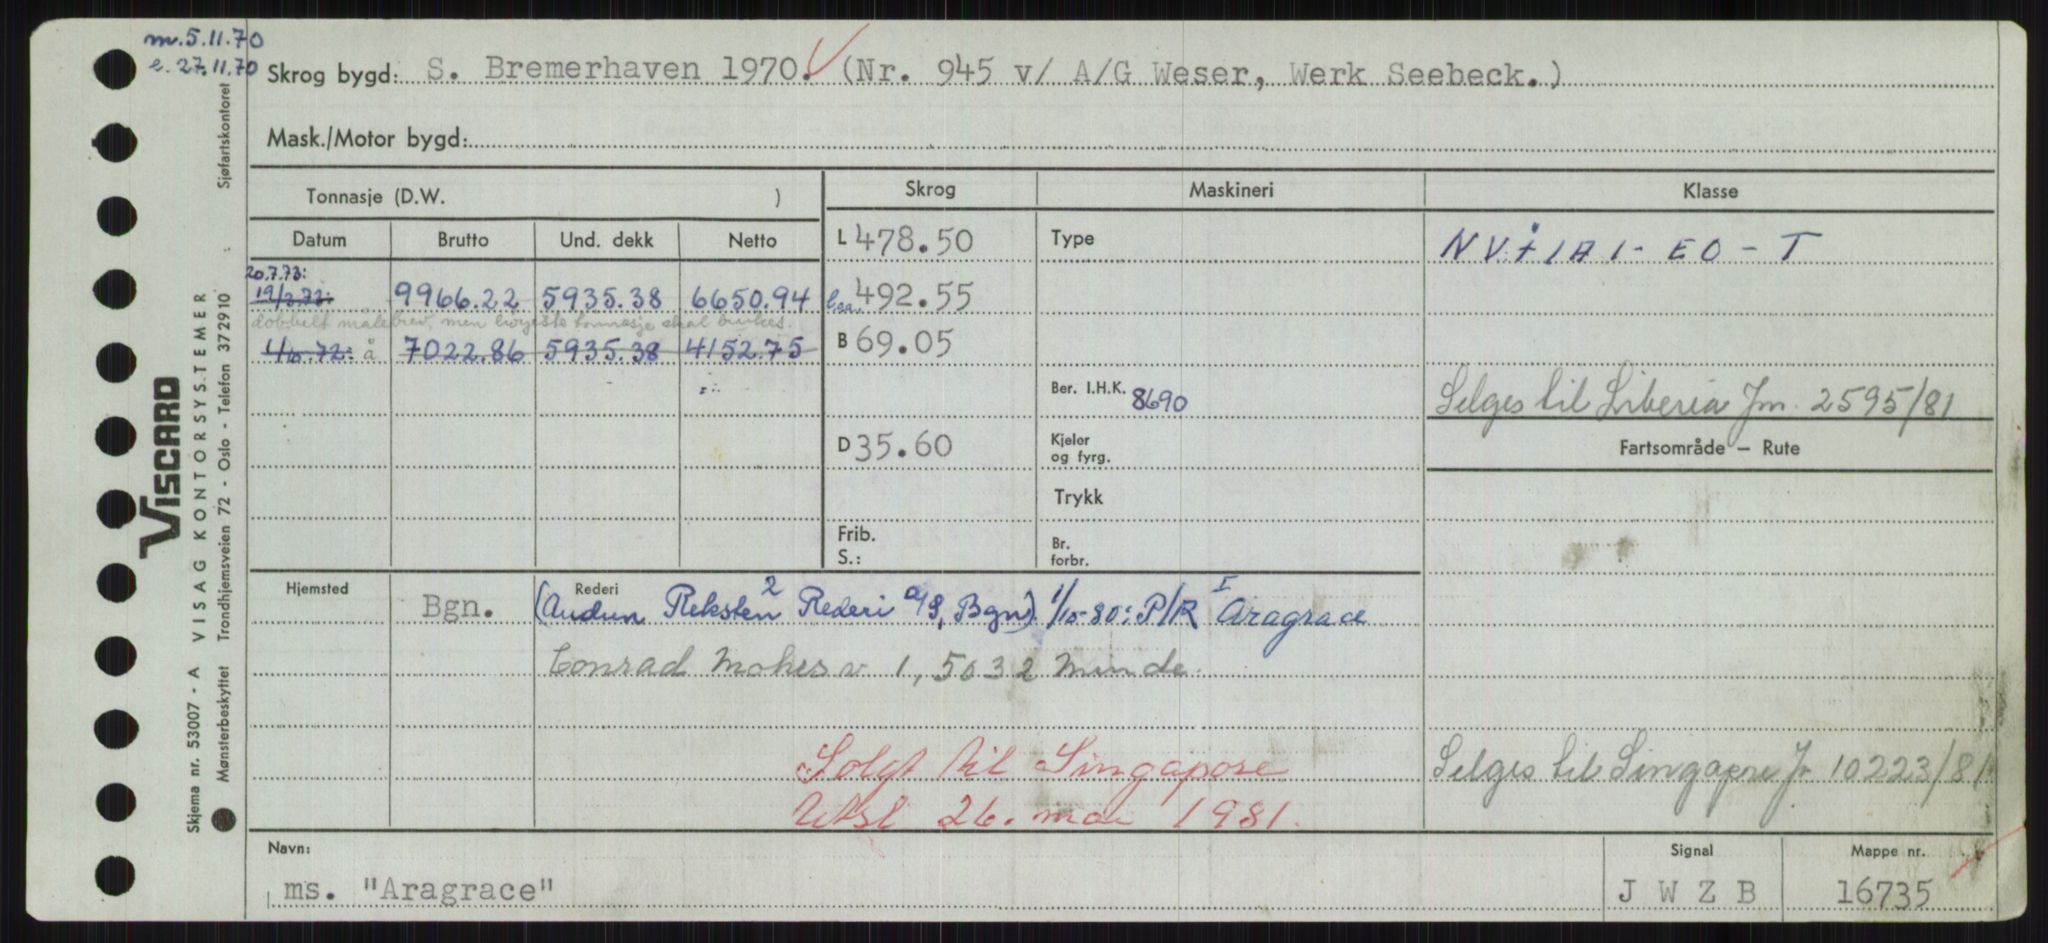 m. 5.11.70
e. 27.11.70
Skrog bygd: S. Bremerhaven 1970. (Nr. 945 v/ A/G Weser, Werk Seebeck.)
Mask./Motor bygd:
Tonnasje (D.W. )
Skrog Maskineri Klasse
Datum Brutto Und. dekk Netto
L 478.50 Type NV+1A1-EO-T
20.7.73:
19/3.72: 9966.22 5935.38 6650.94 loa. 492.55
dobbelt målebrev, men høyeste tonnasje skal brukes.
1/10.72: å 7022.86 5935.38 4152.75 B 69.05
Ber. I.H.K. 8690 Selges til Liberia Jm. 2595/81
D 35.60 Kjeler og fyrg. Fartsområde — Rute
Trykk
Frib. S.: Br. forbr.
Hjemsted Rederi
Bgn. (Audun Reksten 2 Rederi a/s, Bgn) 1/10-80: P/R I Aragrace
Conrad Mohrs v 1, 5032 Minde
Solgt til Singapore Selges til Singapore J 10223/81
Utsl 26. mai 1981.
Navn: Signal Mappe nr.
ms. "Aragrace" J W Z B 16735
Skjema nr. 53007 - A VISAG KONTORSYSTEMER
Mønsterbeskyttet Trondhjemsveien 72 - Oslo - Telefon 372910 Sjøfartskontoret
VISCARD